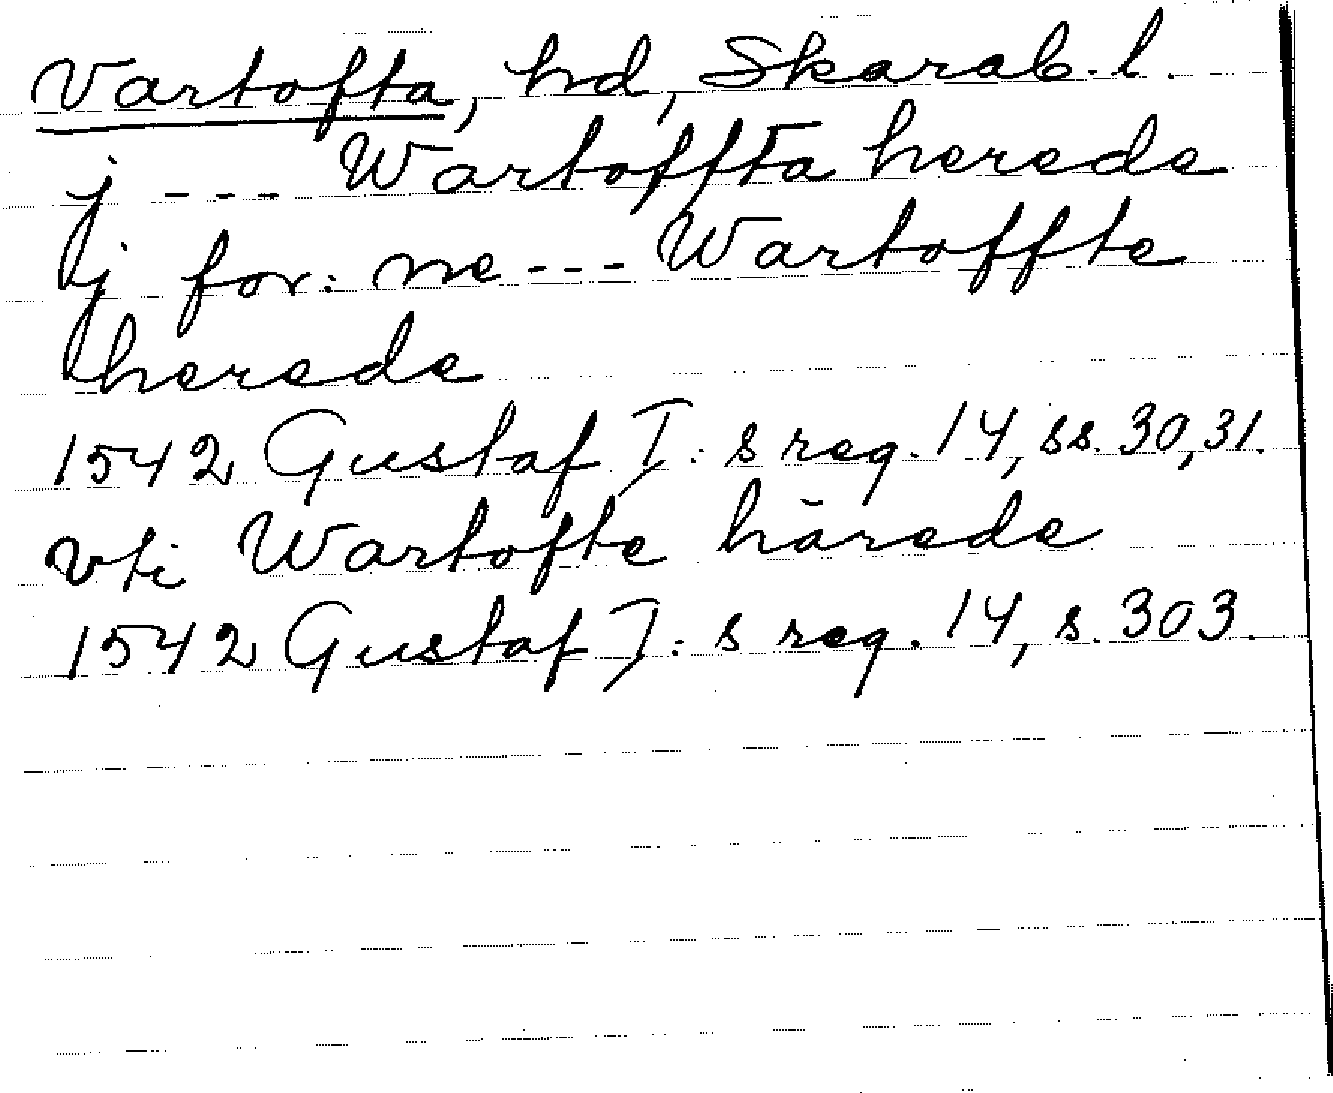 Vartofta, hd, Skarab. l.
j --- Wartoffta herede
j for: ne --- Wartoffte
herede
1542 Gustaf I: s reg. 14, ss. 30, 31.
vti Wartofte härede
1542 Gustaf I: s reg. 14, s. 303.